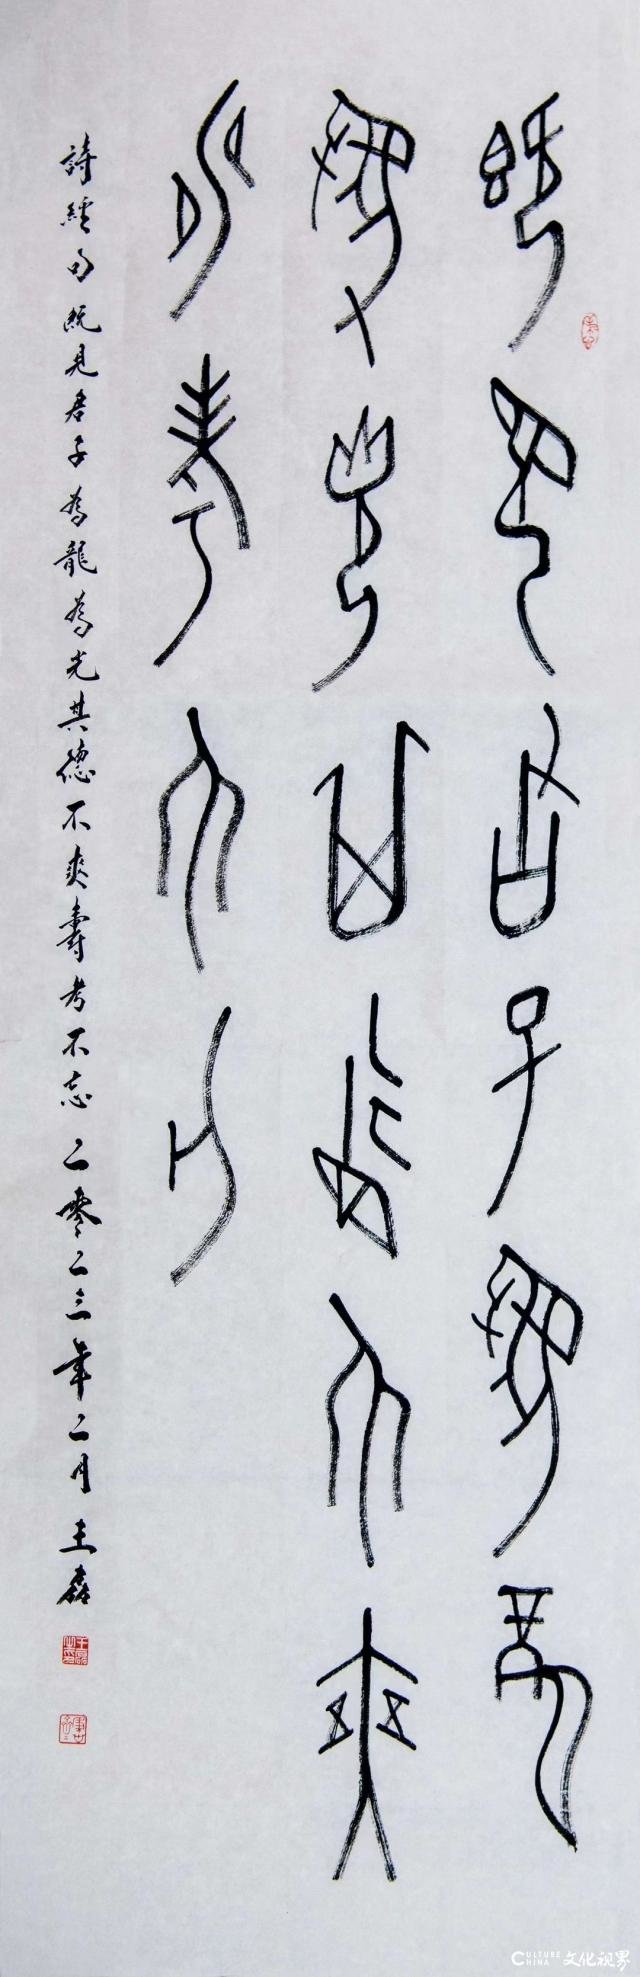 既見君子為龍
為光其德不爽
壽考不忘
詩經句既見君子為龍為光其德不爽壽考不忘二零二三年二月王磊
CULTURE
CHINA
文化视界